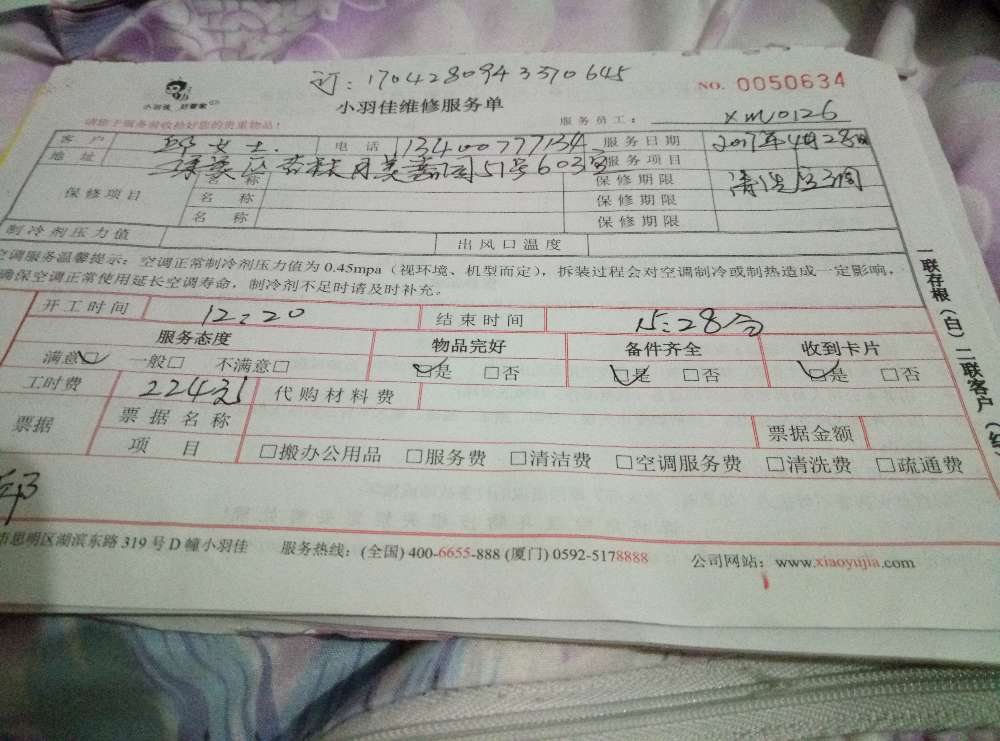 订：1704280943370645
NO. 0050634
小羽佳 好管家
小羽佳维修服务单
请您于服务前收拾好您的贵重物品！
服务员工： XM0126
客户 女士. 电话 13400777134 服务日期 2017年4月28日
地址 杏林 51号603室 服务项目
保修项目 名称 保修期限 清洗
名称 保修期限
名称 保修期限
制冷剂压力值 出风口温度
空调服务温馨提示：空调正常制冷剂压力值为0.45mpa（视环境、机型而定），拆装过程会对空调制冷或制热造成一定影响，
确保空调正常使用延长空调寿命，制冷剂不足时请及时补充。
开工时间 12:20 结束时间 15:28分
服务态度 物品完好 备件齐全 收到卡片
满意□ 一般□ 不满意□ □是 □否 □是 □否 □是 □否
工时费 224元 代购材料费
票据 票据名称 票据金额
项目 □搬办公用品 □服务费 □清洁费 □空调服务费 □清洗费 □疏通费
市思明区湖滨东路319号D幢小羽佳 服务热线：(全国) 400-6655-888 (厦门) 0592-5178888 公司网站：www.xiaoyujia.com
一联存根（白）二联客户（红）